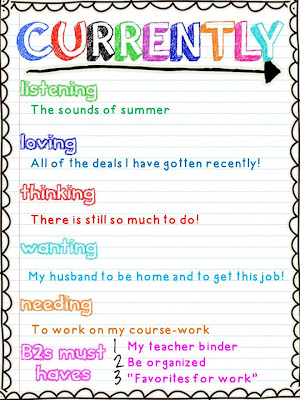 CURRENTLY
listening
The sounds of summer
loving
All of the deals I have gotten recently!
thinking
There is still so much to do!
wanting
My husband to be home and to get this job!
needing
To work on my course-work
B2s must haves
1 My teacher binder
2 Be organized
3 "Favorites for work"